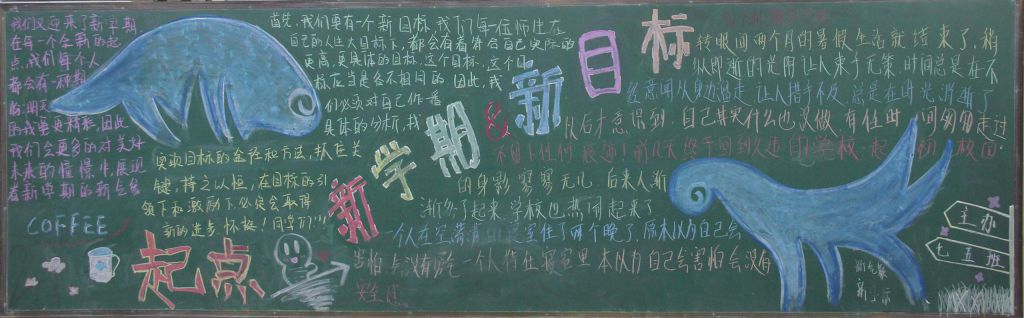 我们又迎来了新学期
在每一个全新的起
点,我们每个人
都会有一种期
的我要更精彩,因此
我们会更多的对美好
未来的憧憬中,展现
着新学期的新会会
COFFEE
起点
首先,我们要有一个新目标,我们每一位师生在
自己的人生大目标下,都会有着符合自己实际的
更高,更具体的目标,这个目标,这个目
标应当是各不相同的因此,我
们必须对自己作番
具体的分析,找
实现目标的途径和方法,抓住关
键,持之以恒,在目标的引
领下和激励下必定会取得
新的进步
同学们!!!
新学期新目标
转眼间两个月的暑假生活就结束了,稍
纵即逝的光阴让人束手无策时间总是在不
经意间从身边溜走让人措手不及总是在时光消逝了
以后才意识到自己其实什么也没做,有任时间匆匆走过
不留下任何痕迹!前几天终于回到久违的学校,起初校园
的身影寥寥无几后来人渐
渐多了起来学校也热闹起来了
一个人在空荡荡的寝室住了两个晚了原本以为自己会
害怕
一个人待在寝室里本以为自己会害怕会没有
安全
主办
七五班